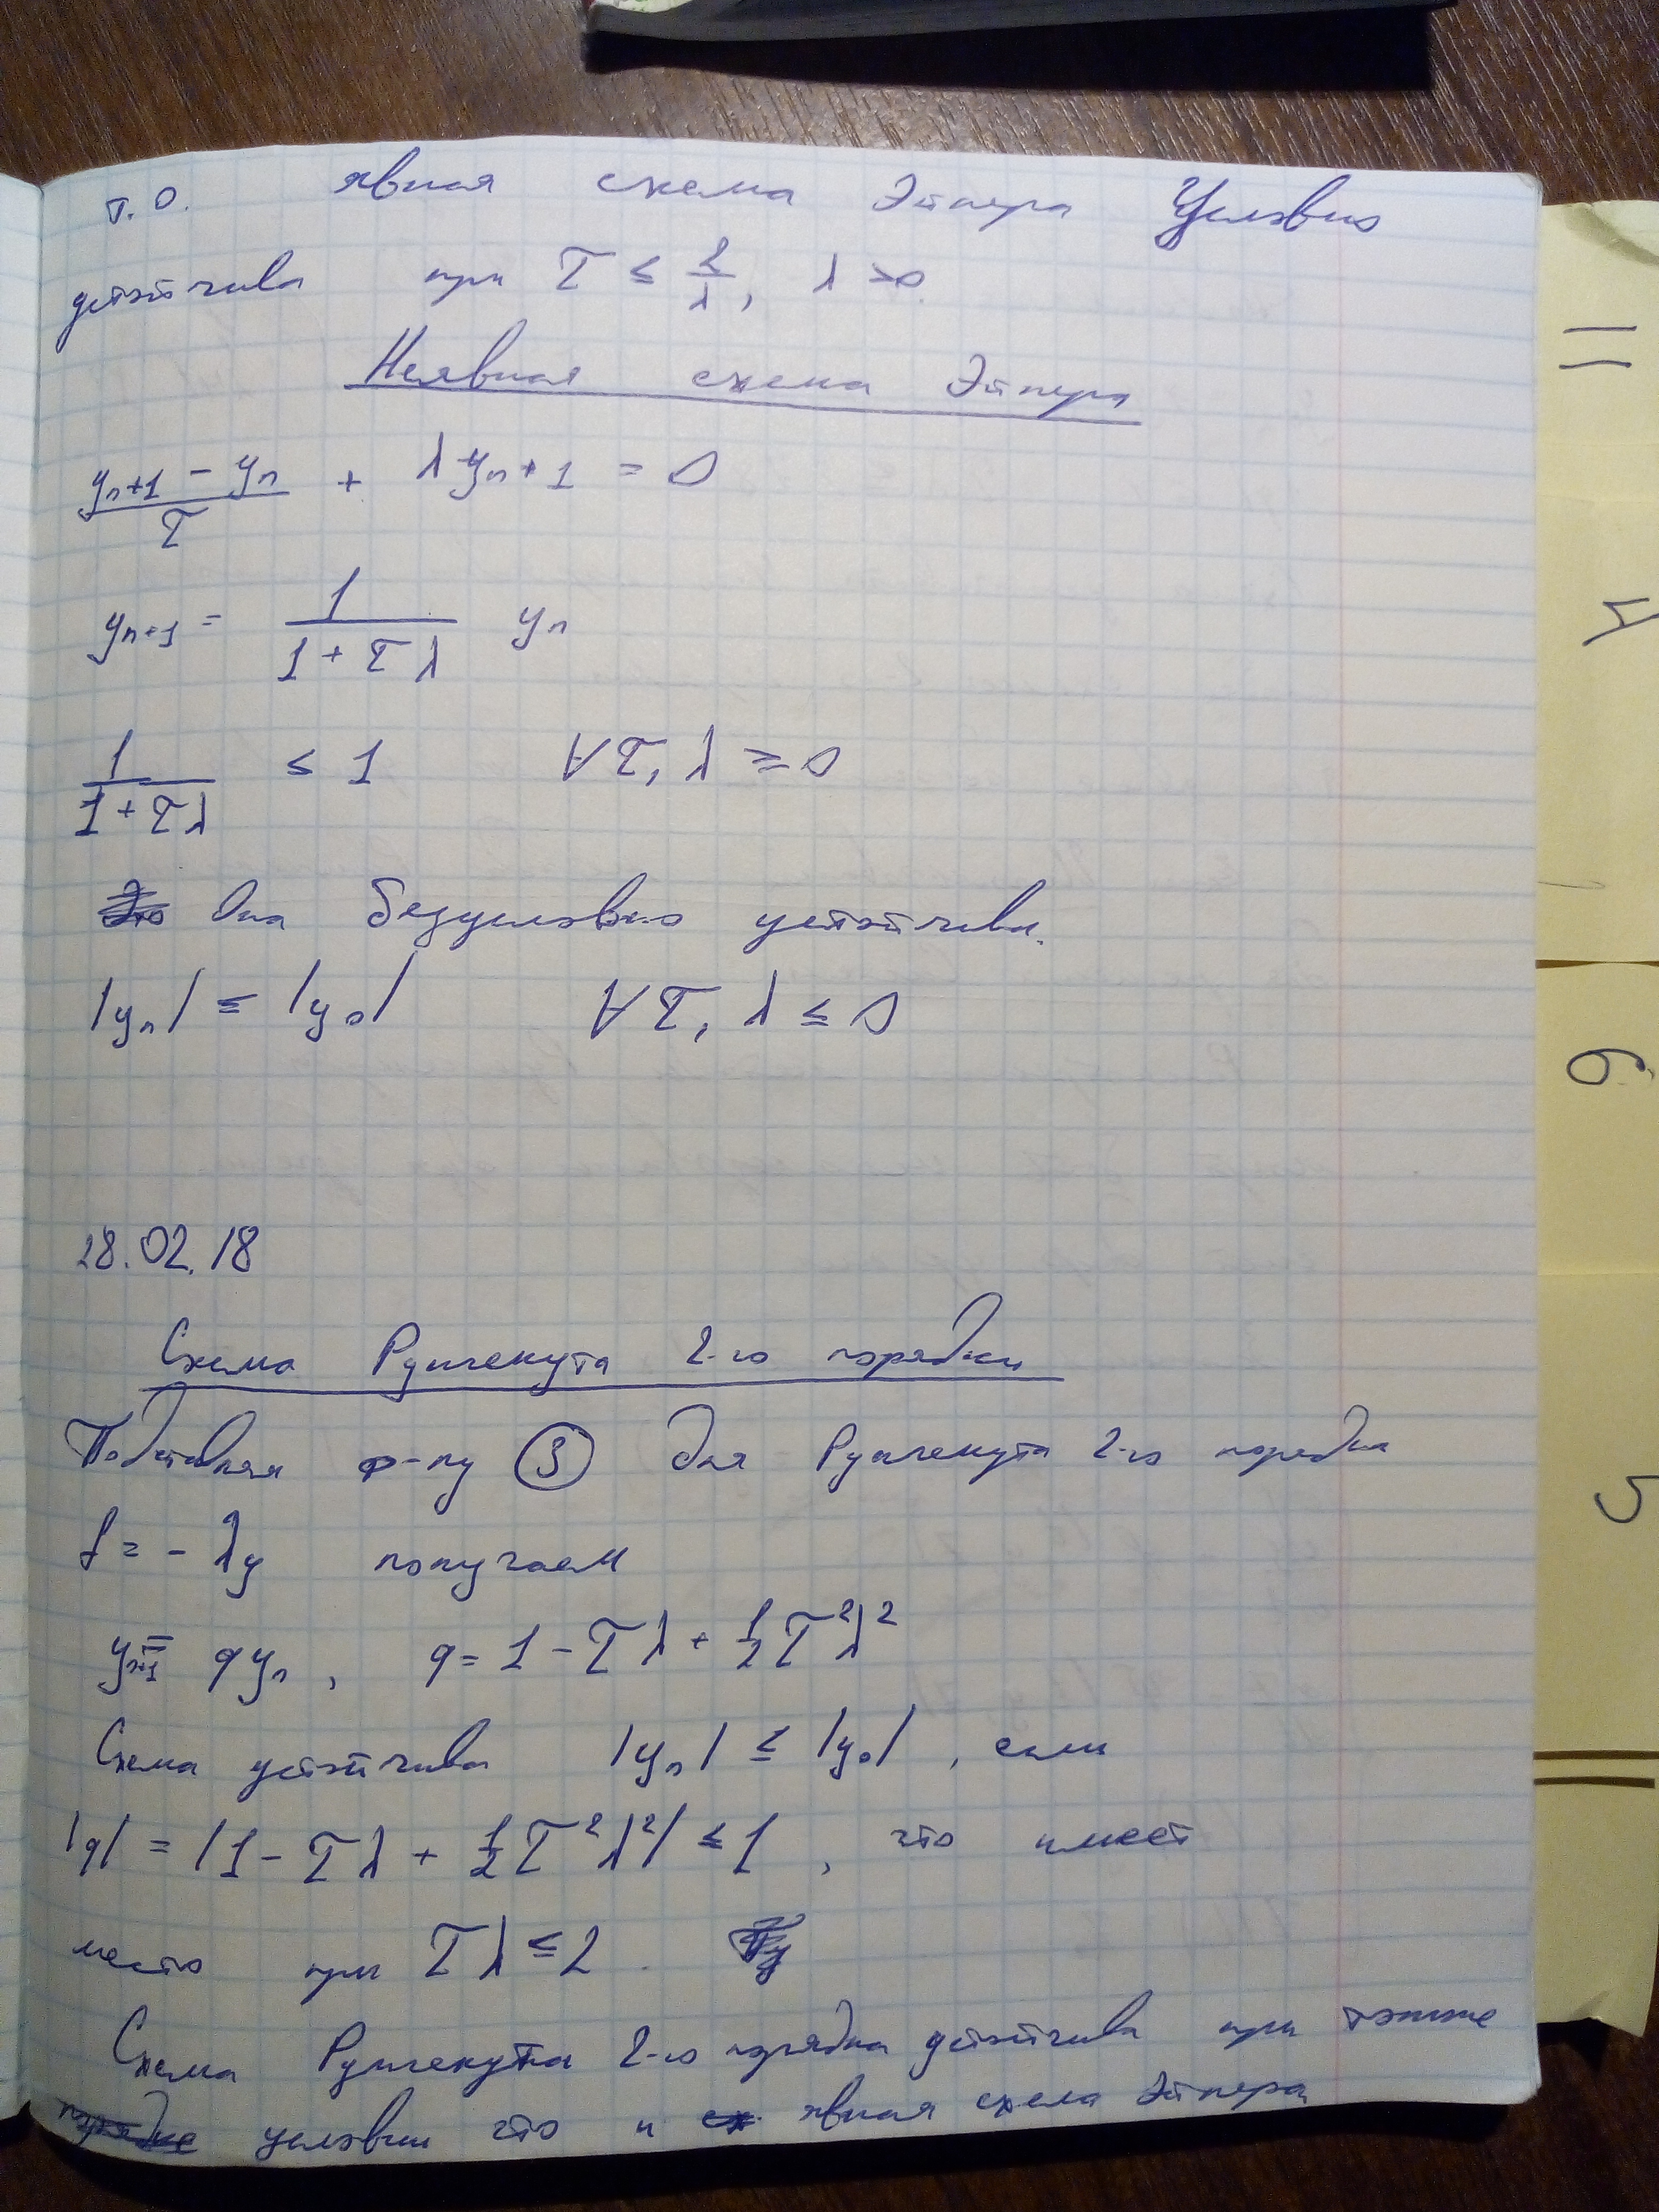 т.о. явная схема Эйлера Условно
устойчива при τ ≤ 2/λ, λ > 0.
Неявная схема Эйлера
(yₙ₊₁ - yₙ)/τ + λyₙ₊₁ = 0
yₙ₊₁ = 1/(1 + τλ) yₙ
1/(1 + τλ) ≤ 1 ∀τ, λ ≥ 0
Она безусловно устойчива.
|yₙ| ≤ |y₀| ∀τ, λ ≥ 0
28.02.18
Схема Рунгекутта 2-го порядка
Подставляя ф-лу ③ для Рунгекутта 2-го порядка
f = - λy получаем
yₙ₊₁ = qyₙ, q = 1 - τλ + ½τ²λ²
Схема устойчива |yₙ| ≤ |y₀|, если
|q| = |1 - τλ + ½τ²λ²| ≤ 1, что имеет
место при τλ ≤ 2.
Схема Рунгекутта 2-го порядка устойчива при том же
условии что и явная схема Эйлера
4
6
5